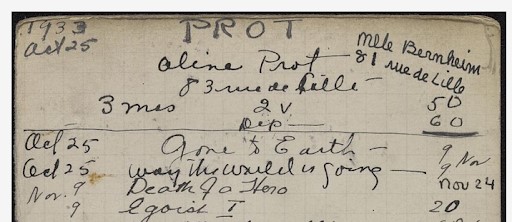 1933 PROT
Oct 25
Aline Prot — Mlle Bernheim
83 rue de Lille — 81 rue de Lille
3 mos 2 v 50
Dep — 60
Oct 25 Gone to Earth — 9 Nov
Oct 25 way the world is going — 9 Nov
Nov. 9 Death of a Hero Nov 24
9 Egoist I 20